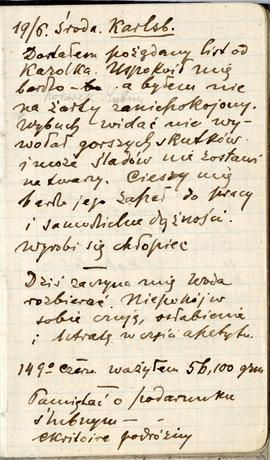 19/6. Środa. Karlsb.
Dostałem pożądany list od
Karolka. Uspokoił mię
bardzo a byłem nie
na żarty zaniepokojony.
Wybuch widać nie wy-
wołał gorszych skutków.
i może śladów nie zostawi
na twarzy. Cieszy mię
bardzo jego zapał do pracy
i samodzielne dążności.
Wyrobi się chłopiec
Dziś zaczyna mię woda
rozbierać. Niepokój w
sobie czuję, osłabienie
i utratę apetytu.
149º ważyłem 56,100 grm
Pamiętać o podarunku
ślubnym —
ekritoire podróżny